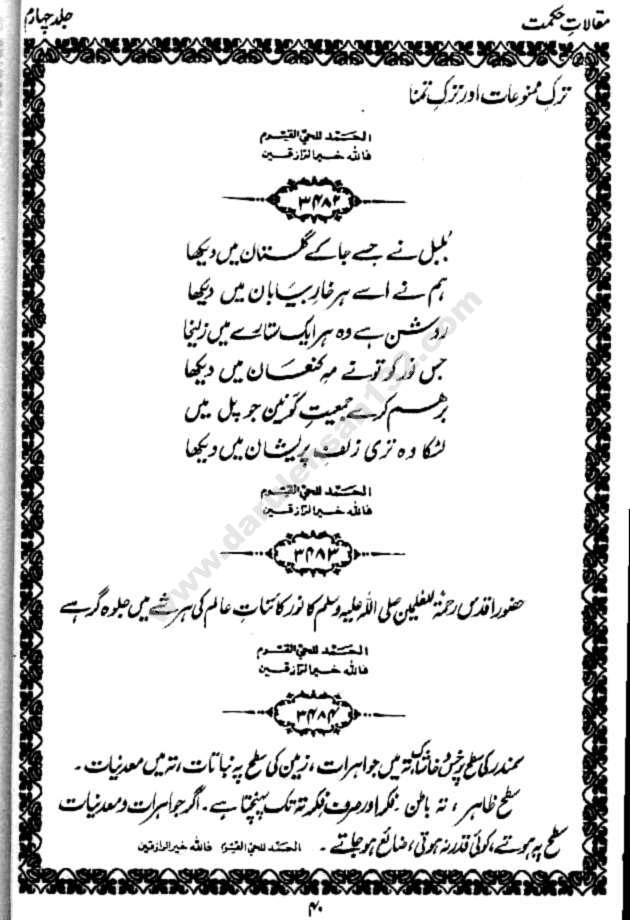 مقالاتِ حکمت
جلد چہارم
ترکِ ممنوعات اور ترکِ تمنا
الحمد للحیّ القیّوم
فاللہ خیر الرازقین
۳۴۸۲
بُلبل نے جسے جا کے گلستان میں دیکھا
ہم نے اسے ہر خارِ بیابان میں دیکھا
روشن ہے وہ ہر ایک ستارے میں زلیخا
جس نور کو تو نے مہِ کنعان میں دیکھا
برہم کرے جمعیتِ کونین جو پل میں
لٹکا وہ تری زلفِ پریشان میں دیکھا
الحمد للحیّ القیّوم
فاللہ خیر الرازقین
۳۴۸۳
حضورِ اقدس رحمۃ للعٰلمین صلی اللہ علیہ وسلم کا نور کائناتِ عالم کی ہر شے میں جلوہ گر ہے
الحمد للحیّ القیّوم
فاللہ خیر الرازقین
۳۴۸۴
سمندر کی سطح پر خس و خاشاک، تہ میں جواہرات، زمین کی سطح پہ نباتات، تہ میں معدنیات ۔
سطح ظاہر، تہ باطن ۔ فکر اور صرف فکر تہ تک پہنچتا ہے ۔ اگر جواہرات و معدنیات
سطح پہ ہوتے، کوئی قدر نہ ہوتی، ضائع ہو جاتے ۔ الحمد للحیّ القیّوم فاللہ خیر الرازقین
۴۰
www.darulehsan132.com